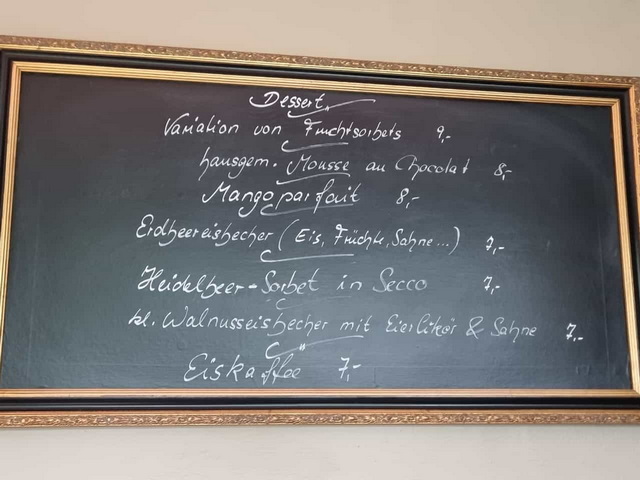 Dessert
Variation von Fruchtsorbets 9,-
hausgem. Mousse au Chocolat 8,-
Mangoparfait 8,-
Erdbeereisbecher (Eis, Früchte, Sahne...) 7,-
Heidelbeer-Sorbet in Secco 7,-
kl. Walnusseisbecher mit Eierlikör & Sahne 7,-
Eiskaffee 7,-